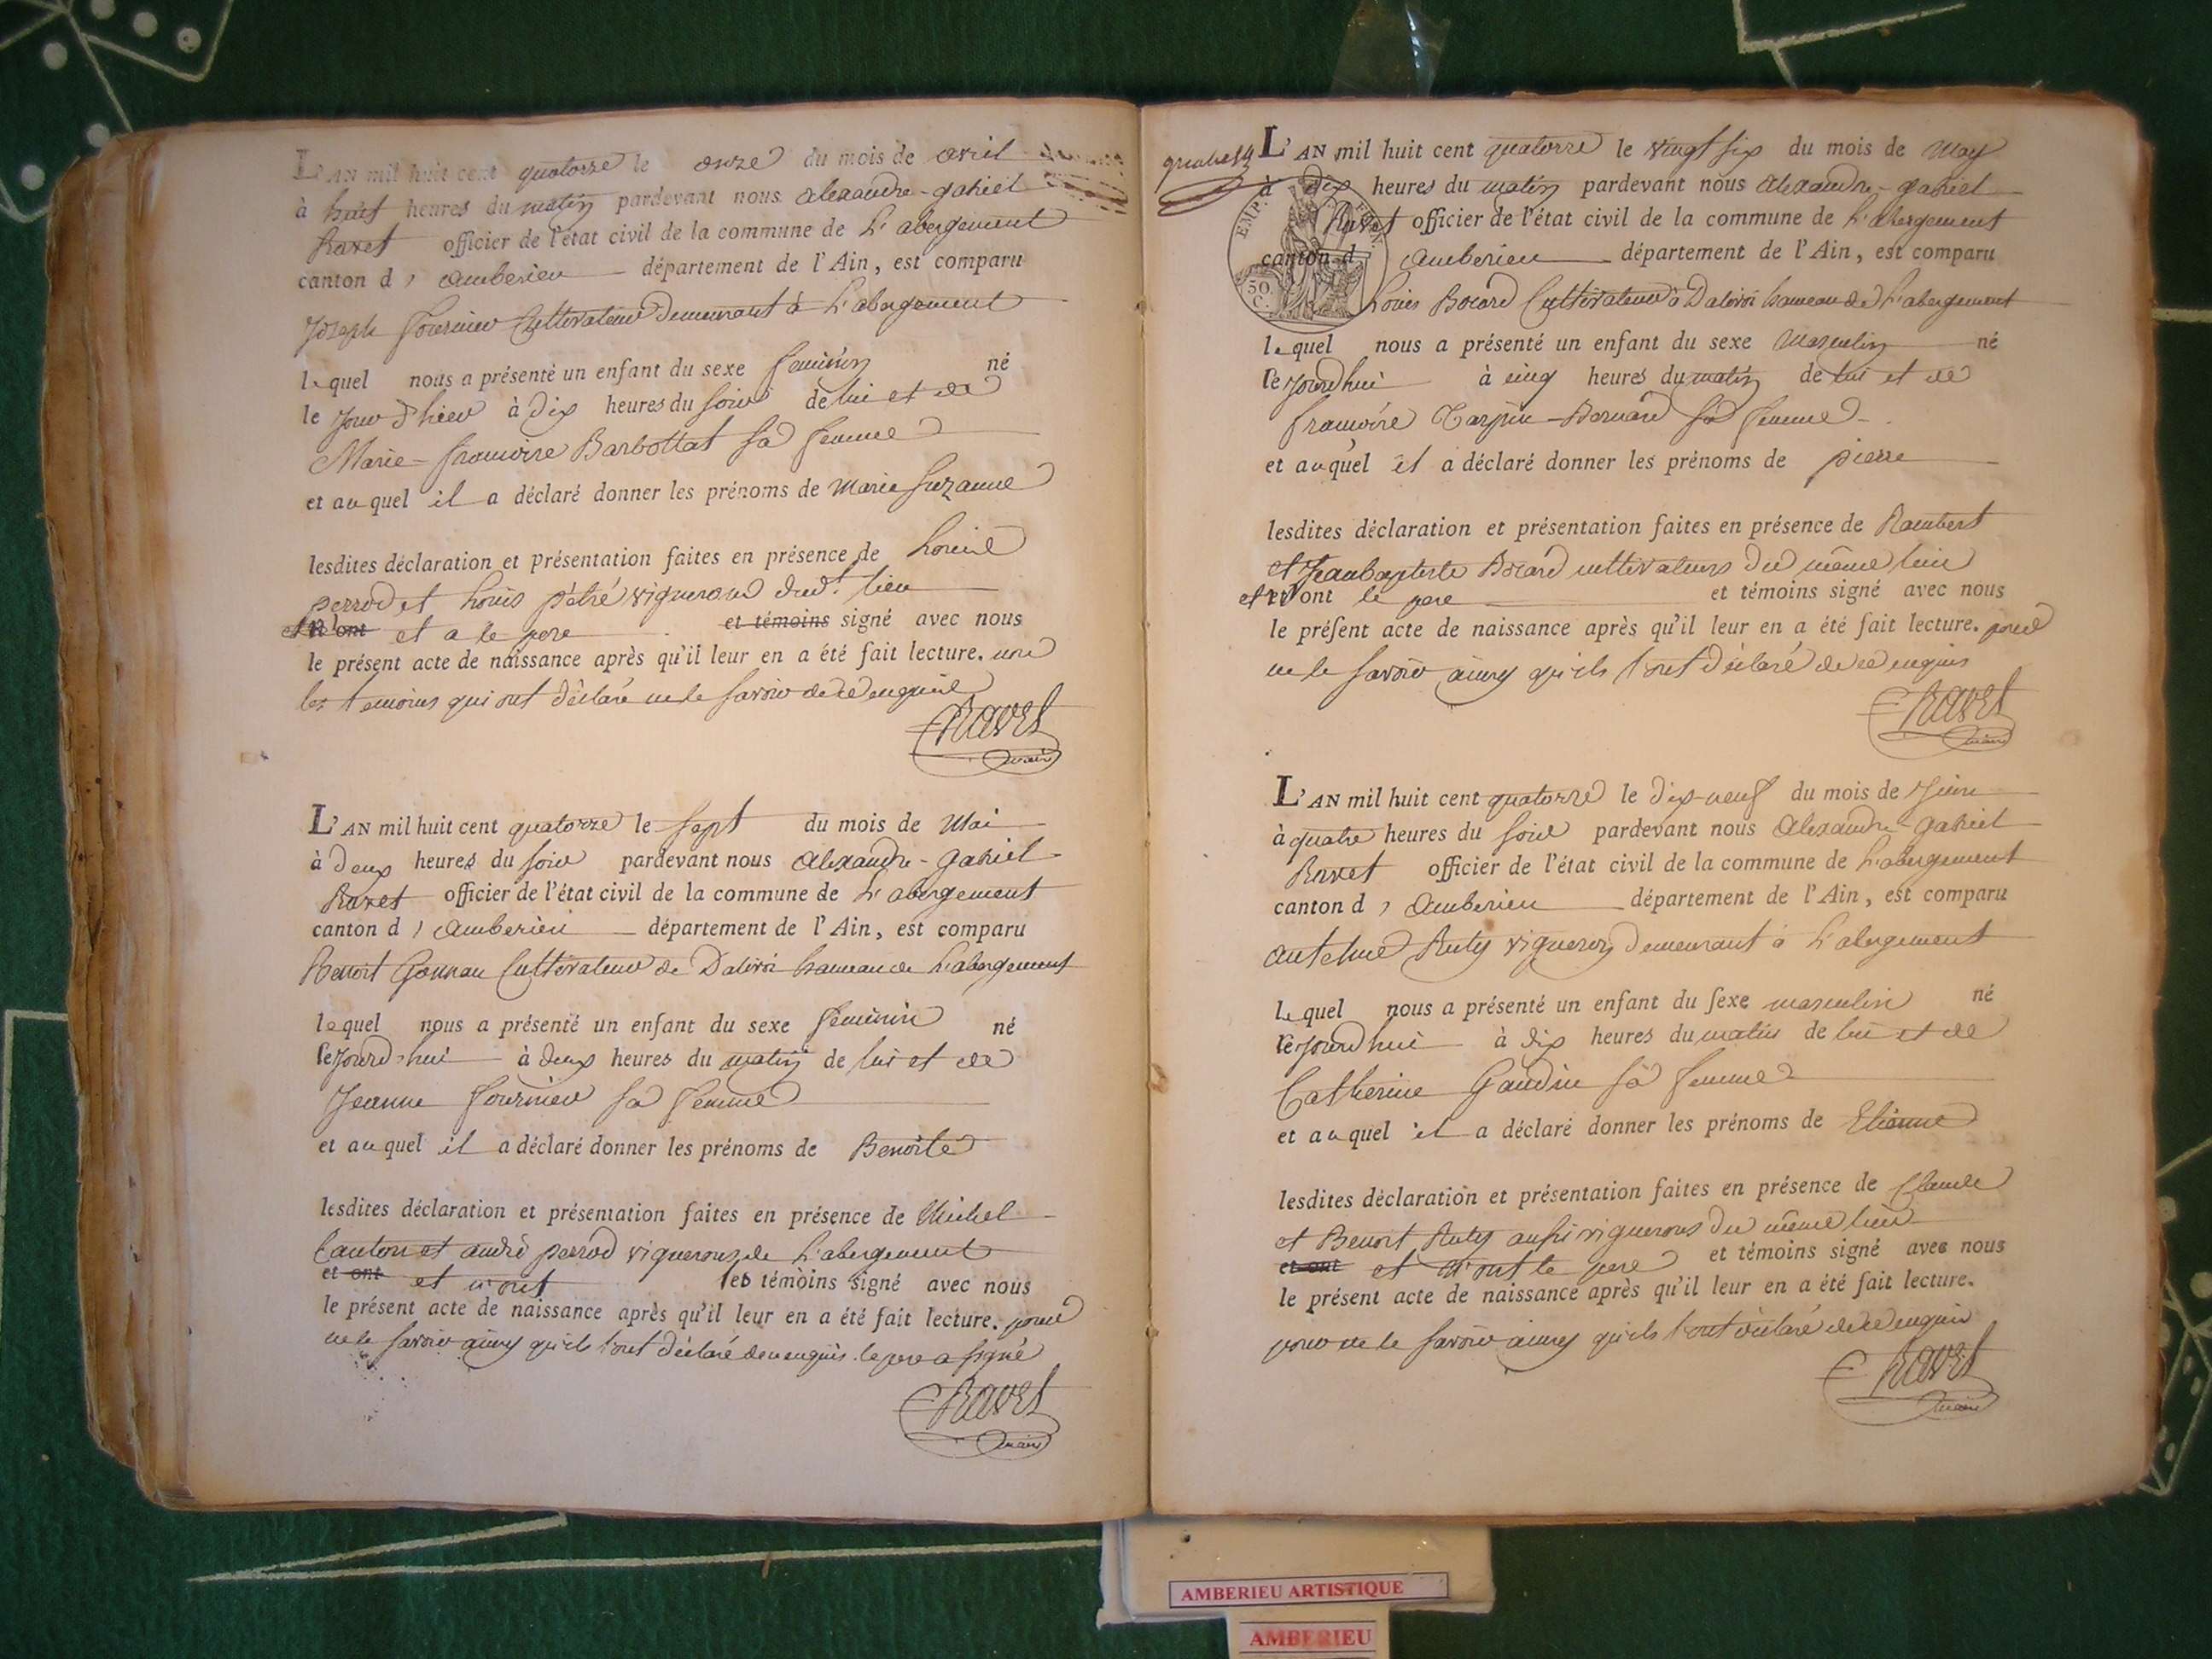 L'AN mil huit cent quatorze le onze du mois de avril
à huit heures du matin pardevant nous alexandre-gabriel
Ravet officier de l'état civil de la commune de L'abergement
canton d' amberieu département de l'Ain, est comparu
Joseph fournier Cultivateur Demeurant à L'abergement
lequel nous a présenté un enfant du sexe feminin né
le jour d'hier à dix heures du soir de lui et de
Marie-francoise Barbottat sa femme
et auquel il a déclaré donner les prénoms de marie suzanne
lesdites déclaration et présentation faites en présence de
perrod et Louis vignerons dud.t lieu
et n'ont et a le pere et témoins signé avec nous
le présent acte de naissance après qu'il leur en a été fait lecture. non
les temoins qui ont déclaré ne le savoir de ce enquis
Ravet
maire
L'AN mil huit cent quatorze le sept du mois de Mai
à deux heures du soir pardevant nous alexandre-gabriel
Ravet officier de l'état civil de la commune de L'abergement
canton d' amberieu département de l'Ain, est comparu
Benoit Gonnau Cultivateur de Dalivoi hameau de L'abergement
lequel nous a présenté un enfant du sexe féminin né
cejourd'hui à deux heures du matin de lui et de
Jeanne fournier sa femme
et auquel il a déclaré donner les prénoms de Benoite
lesdites déclaration et présentation faites en présence de Michel
Canton et andré perrod vignerons de L'abergement
et ont et n'ont les témoins signé avec nous
le présent acte de naissance après qu'il leur en a été fait lecture. pour
ne le savoir ainsy qu'ils l'ont déclaré de ce enquis. le pere a signé
Ravet
maire
L'AN mil huit cent quatorze le vingt six du mois de May
à dix heures du matin pardevant nous alexandre-gabriel
EMP. FRAN.
Ravet officier de l'état civil de la commune de L'abergement
canton d' amberieu département de l'Ain, est comparu
50 C.
Louis Bocard Cultivateur à Dalivoi hameau de L'abergement
lequel nous a présenté un enfant du sexe Masculin né
cejourdhui à cinq heures du matin de lui et de
francoise Tarpin-Bernard sa femme
et auquel il a déclaré donner les prénoms de pierre
lesdites déclaration et présentation faites en présence de Rambert
et Jeanbaptiste Bocard cultivateurs du même lieu
et n'ont le pere et témoins signé avec nous
le présent acte de naissance après qu'il leur en a été fait lecture. pour
ne le savoir ainsy qu'ils l'ont déclaré de ce enquis
Ravet
maire
L'AN mil huit cent quatorze le dix-neuf du mois de Juin
à quatre heures du soir pardevant nous alexandre-gabriel
Ravet officier de l'état civil de la commune de L'abergement
canton d' amberieu département de l'Ain, est comparu
antelme Ruty vigneron demeurant à L'abergement
lequel nous a présenté un enfant du sexe masculin né
cejourdhui à dix heures du matin de lui et de
Catherine Gaudin sa femme
et auquel il a déclaré donner les prénoms de Etienne
lesdites déclaration et présentation faites en présence de Claude
et Benoit Ruty aussi vignerons du même lieu
et ont et n'ont le pere et témoins signé avec nous
le présent acte de naissance après qu'il leur en a été fait lecture.
pour ne le savoir ainsy qu'ils l'ont déclaré de ce enquis
Ravet
maire
AMBERIEU ARTISTIQUE
AMBERIEU